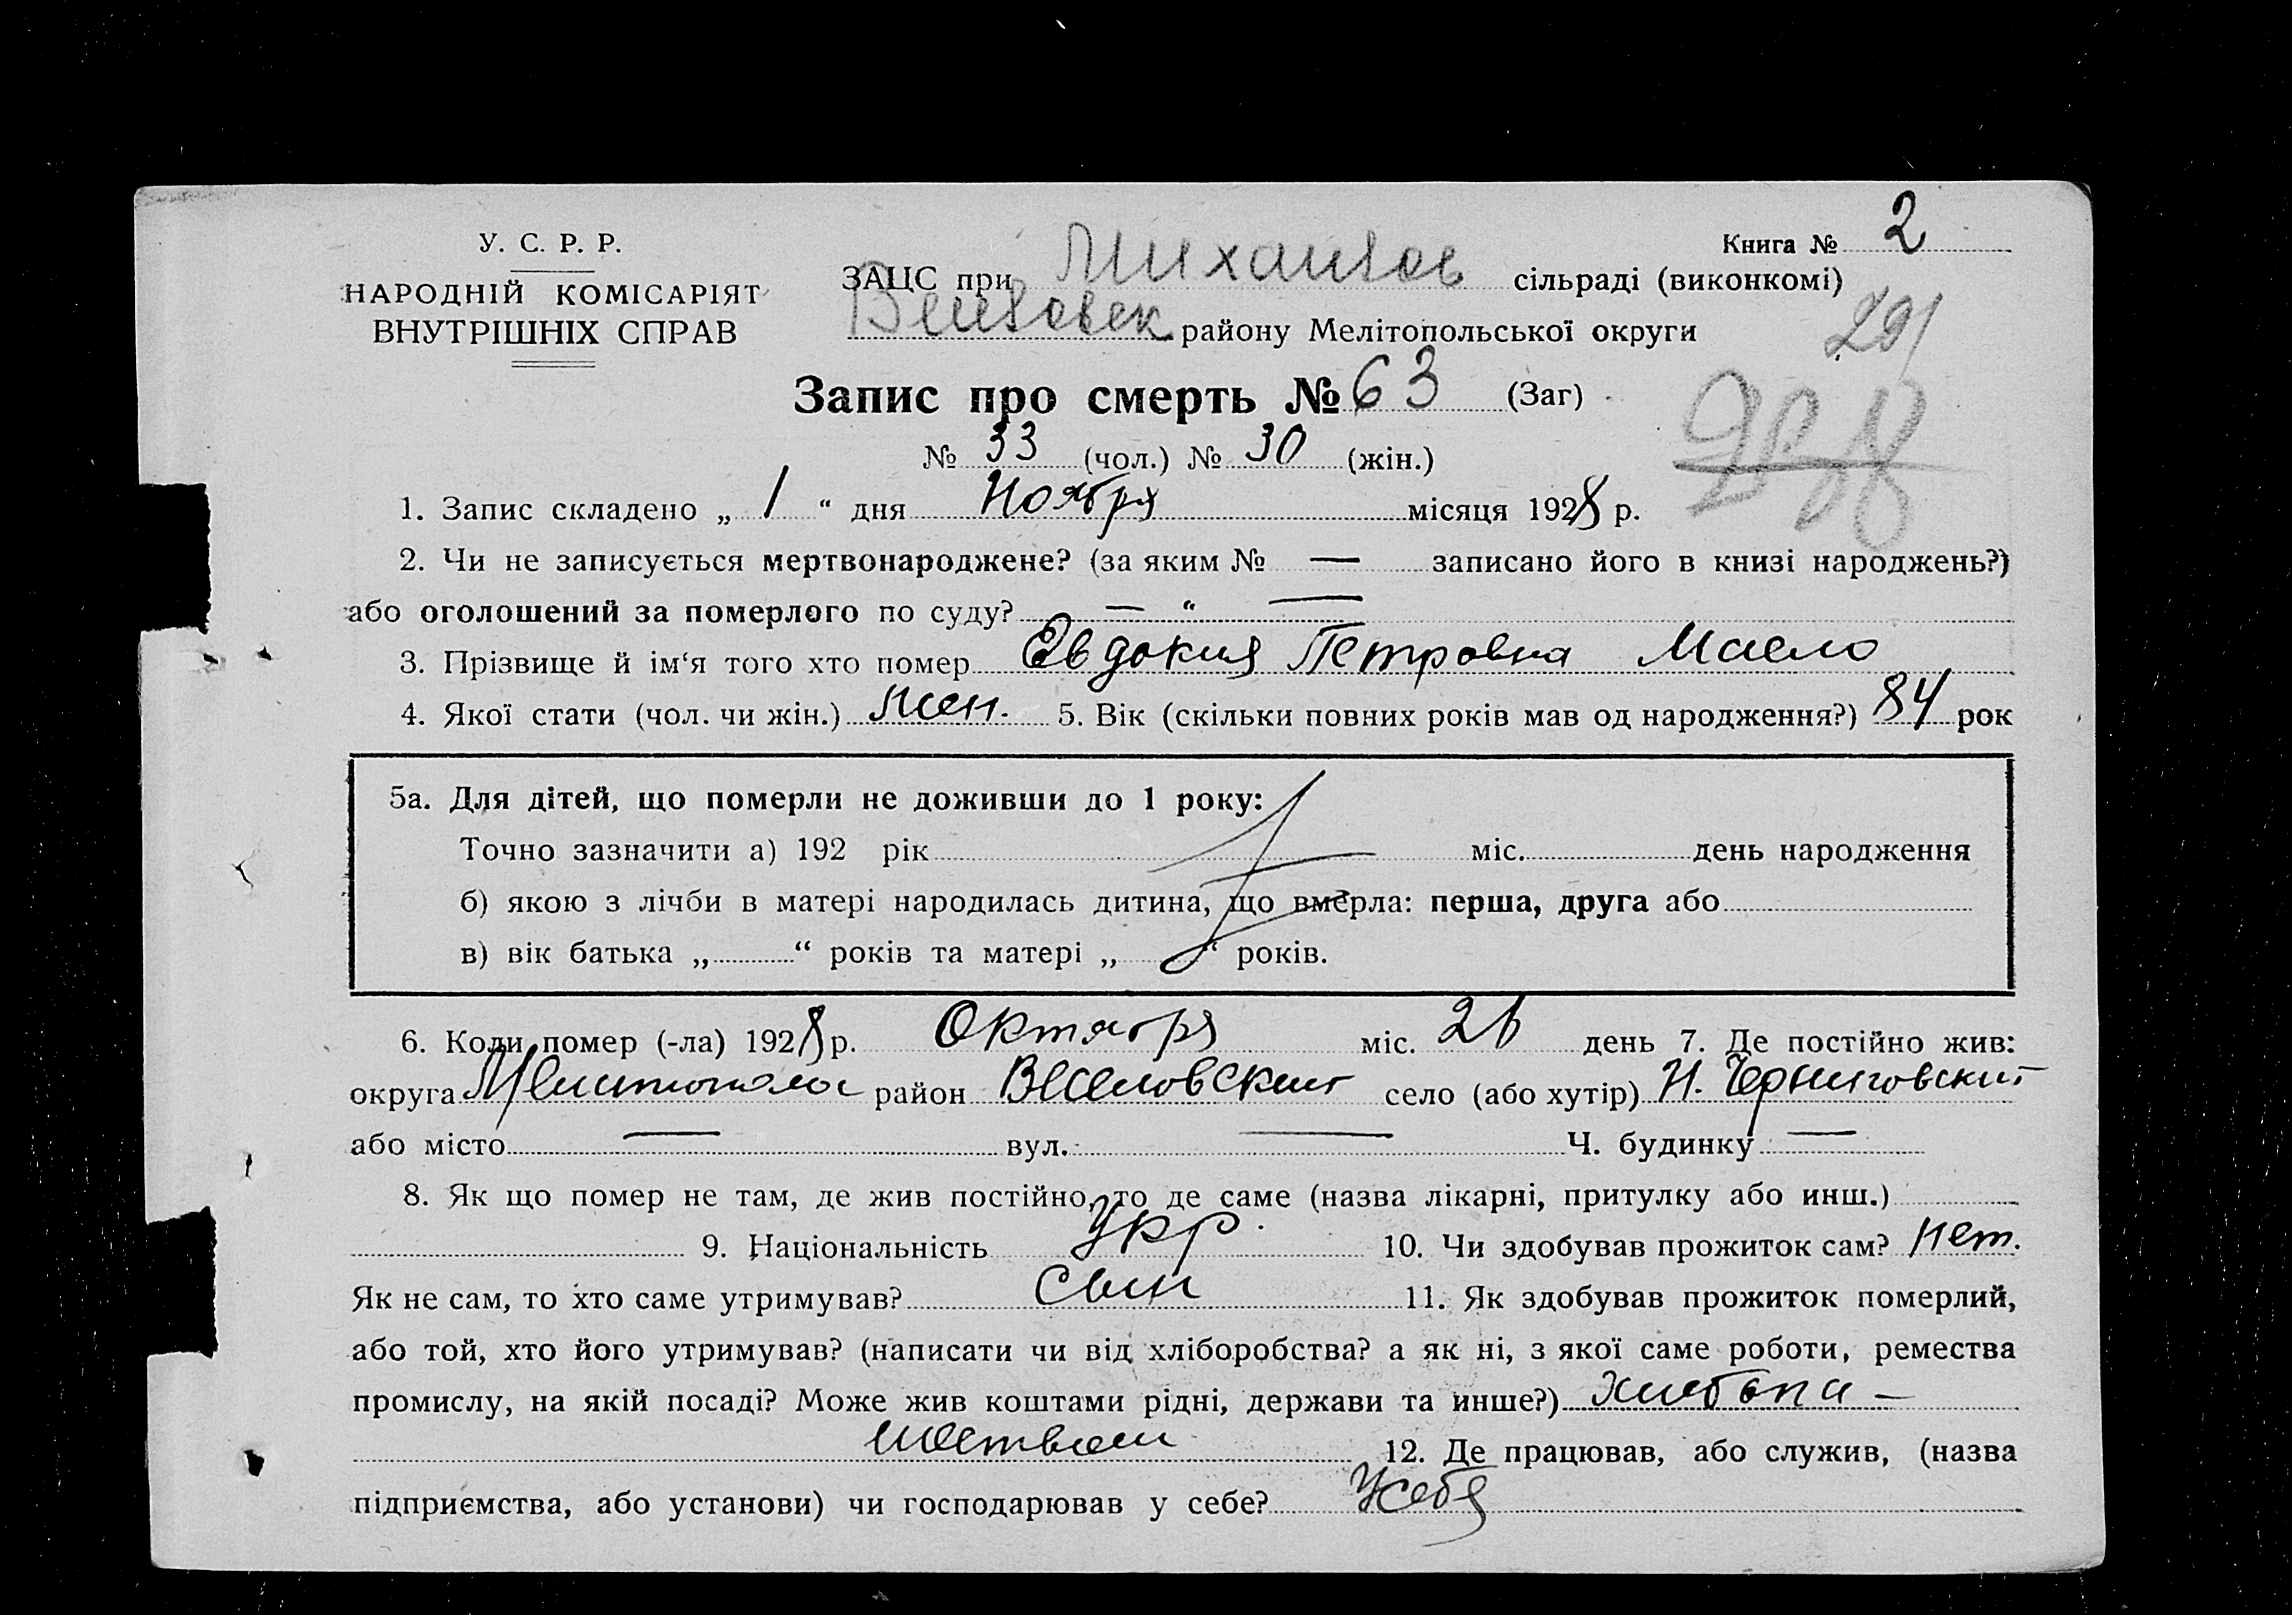 У. С. Р. Р.
НАРОДНІЙ КОМІСАРІЯТ
ВНУТРІШНІХ СПРАВ
Книга № 2
ЗАЦС при Михайлов сільраді (виконкомі)
Веселовск району Мелітопольської округи
291
Запис про смерть № 63 (Заг)
№ 33 (чол.) № 30 (жін.)
1. Запис складено „ 1 “ дня Ноября місяця 1928 р.
2. Чи не записується мертвонароджене? (за яким № — записано його в книзі народжень?)
або оголошений за померлого по суду? — “ —
3. Прізвище й ім‘я того хто помер Евдокия Петровна Масло
4. Якої стати (чол. чи жін.) жен. 5. Вік (скільки повних років мав од народження?) 84 рок
5а. Для дітей, що померли не доживши до 1 року:
Точно зазначити а) 192 рік міс. день народження
б) якою з лічби в матері народилась дитина, що вмерла: перша, друга або
в) вік батька „ “ років та матері „ “ років.
6. Коли помер (-ла) 1928 р. Октября міс. 26 день 7. Де постійно жив:
округа Мелитополос район Веселовский село (або хутір) Н. Черниговский
або місто — вул. — Ч. будинку —
8. Як що помер не там, де жив постійно, то де саме (назва лікарні, притулку або инш.)
9. Національність Укр. 10. Чи здобував прожиток сам? Нет.
Як не сам, то хто саме утримував? Сын 11. Як здобував прожиток померлий,
або той, хто його утримував? (написати чи від хліборобства? а як ні, з якої саме роботи, ремества
промислу, на якій посаді? Може жив коштами рідні, держави та инше?) Хлебопа-
шеством 12. Де працював, або служив, (назва
підприємства, або установи) чи господарював у себе? У себя